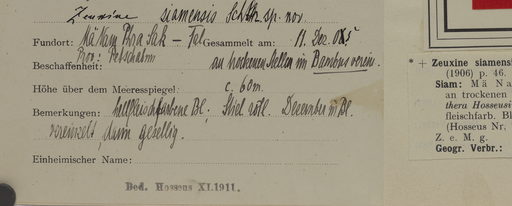 Zeuxine siamensis Schltr. sp. nov.
Fundort: Mä Nam Phra Sak - Tal Gesammelt am: 11. Dez. 05
Prov: Petschabun
Beschaffenheit: an trockenen Stellen im Bambus
Höhe über dem Meeresspiegel: c. 60m.
Bemerkungen: hellfleischfarbene Bl; Stiel röll. Dezember in Bl.
vereinzelt, dann gesellig.
Einheimischer Name:
Ded. Hosseus XI.1911.
* + Zeuxine siamens
(1906) p. 46.
Siam: Mä Na
an trockenen
thera Hosseusi
fleischfarb. Bl
(Hosseus Nr.
Z. e. M. g.
Geogr. Verbr.: